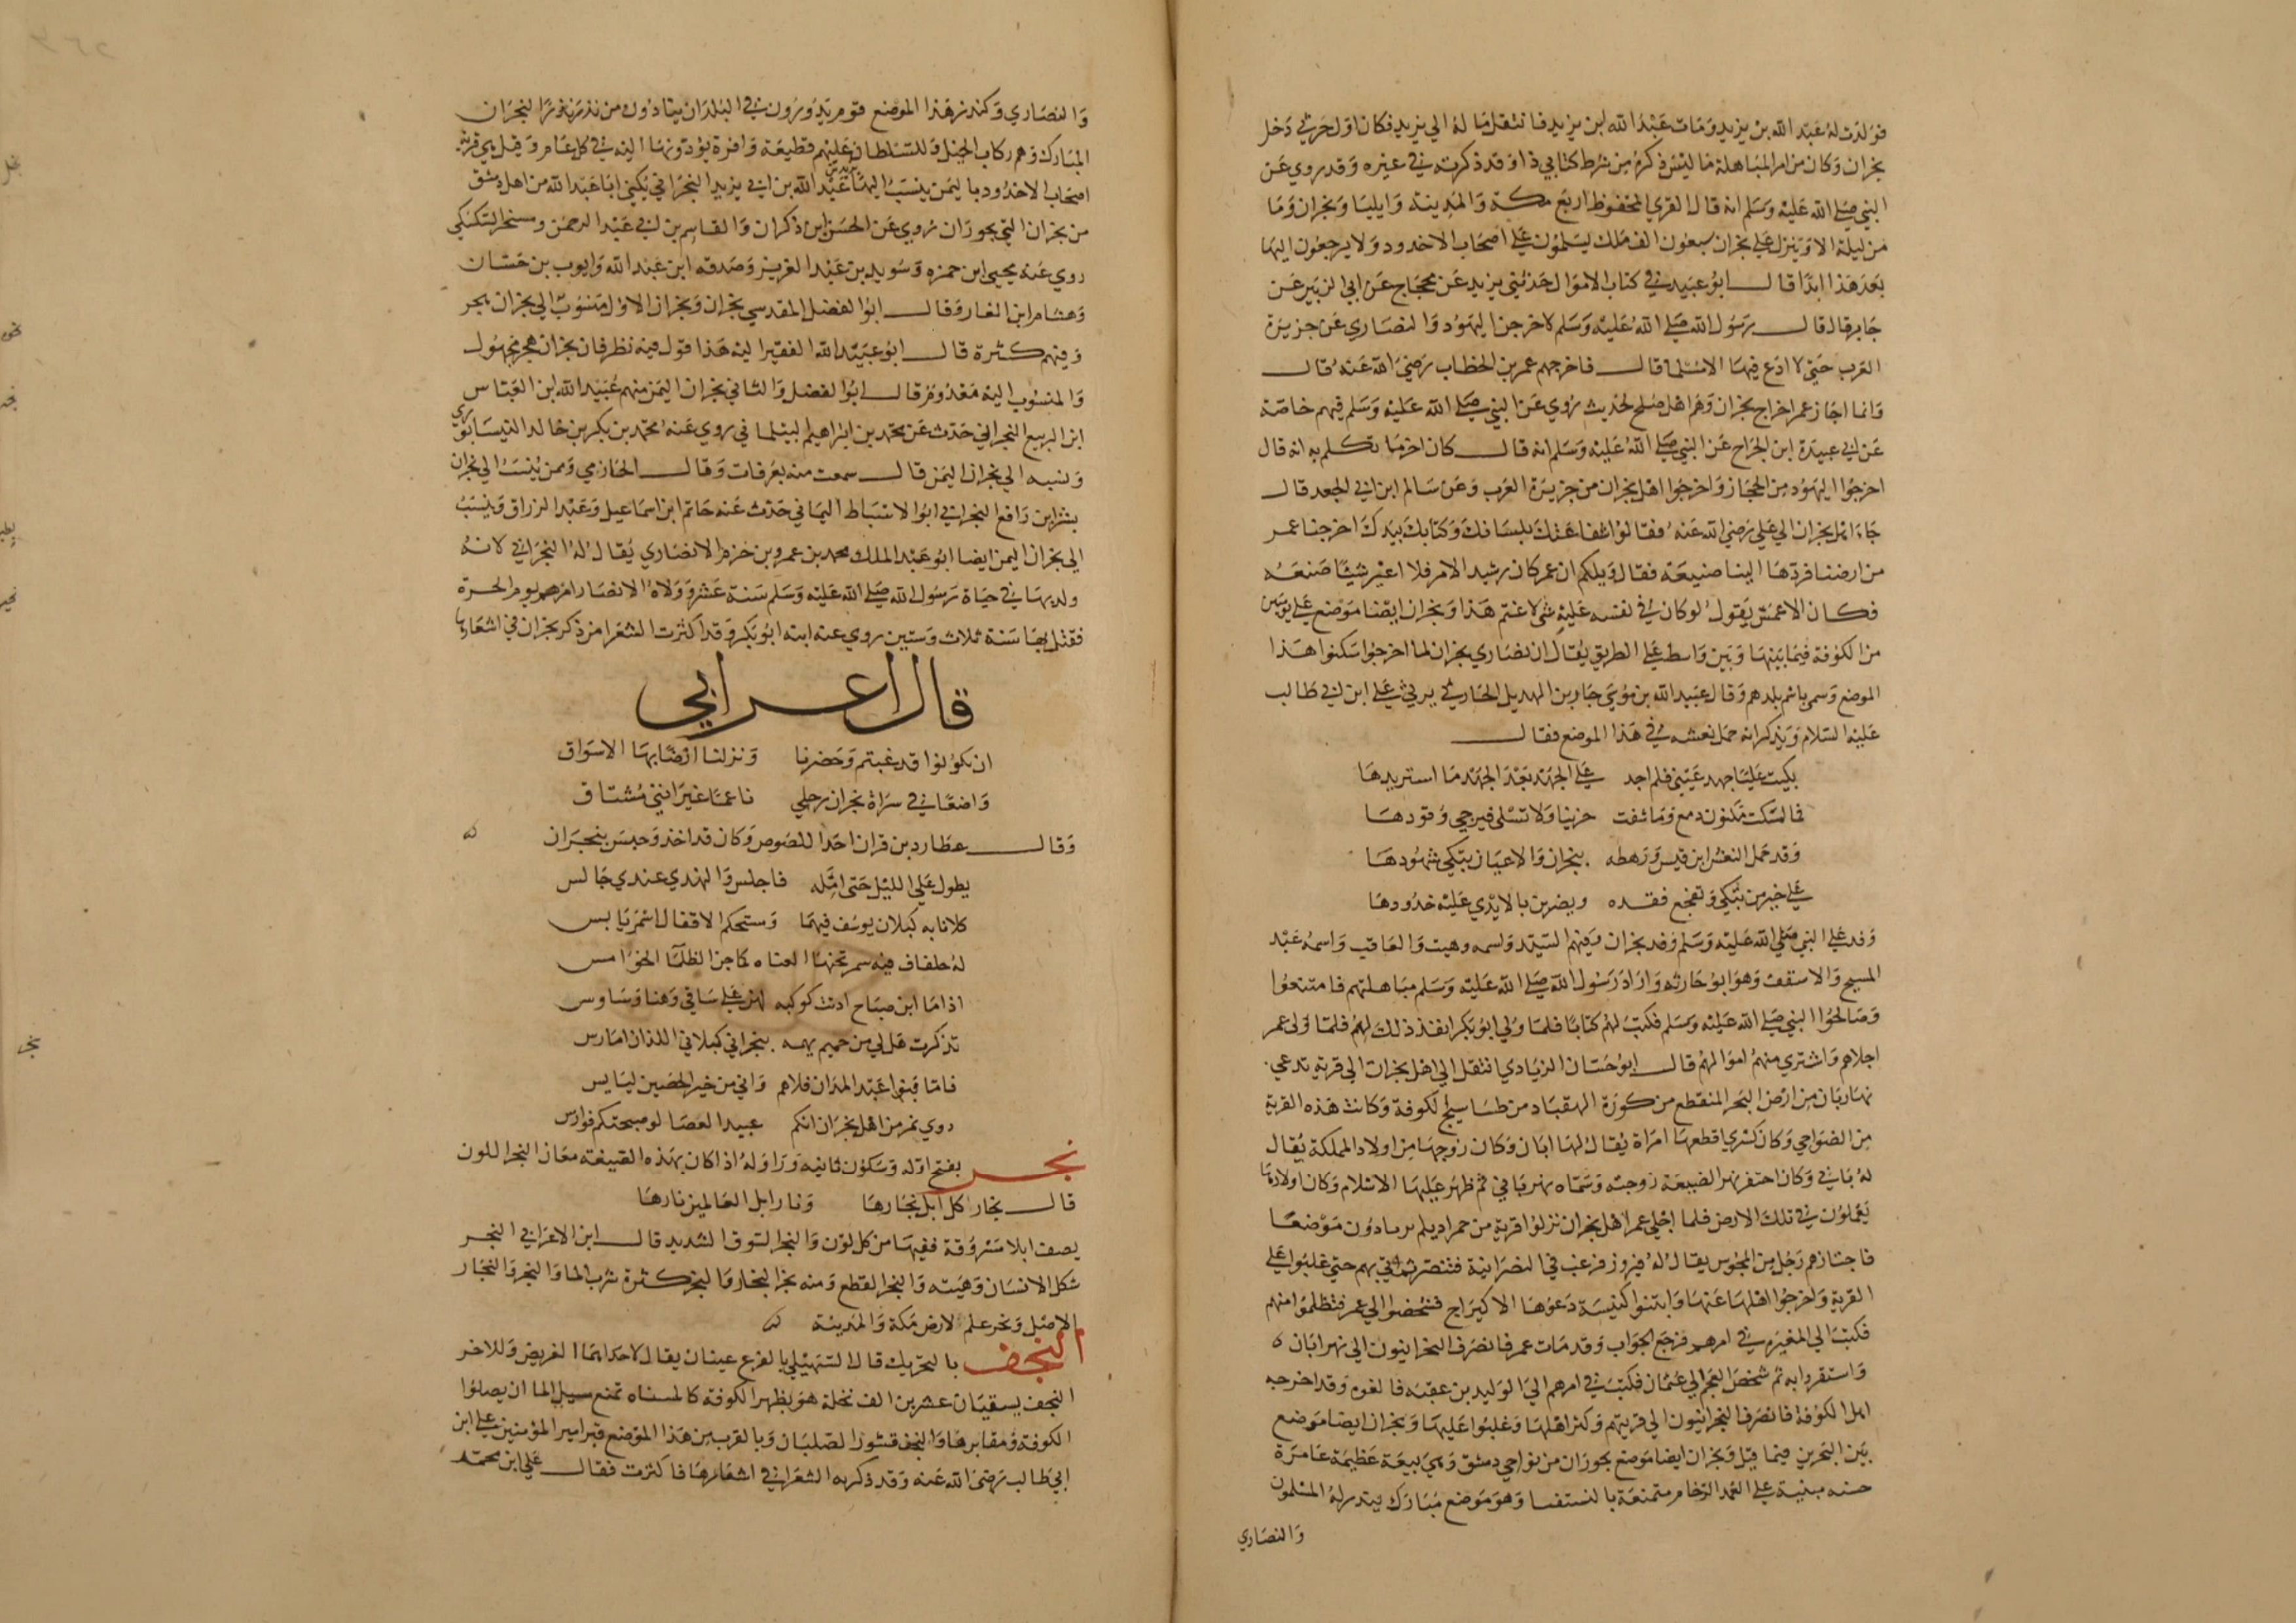 فولدت له عبد الله بن يزيد ومات عبد الله ابن يزيد فانتقل ماله الي يزيد فكان اول حرثي دخل
نجران وكان من امر المباهلة ما ليس ذكره من شرط كتابي ذا وقد ذكرته في غيره وقد روي عن
النبي صلي الله عليه وسلم انه قال القري المحفوظة اربع مكة والمدينة وايليا ونجران وما
من ليلة الا وينزل علي نجران سبعون الف ملك يسلمون علي اصحاب الاخدود ولا يرجعون اليها
بعد هذا ابدا قال ابو عبيد في كتاب الاموال حدثني يزيد عن حجاج عن ابي الزبير عن
جابر قال قال رسول الله صلي الله عليه وسلم لاخرجن اليهود والنصاري عن جزيرة
العرب حتي لا ادع فيها الا مسلما قال فاخرجهم عمر بن الخطاب رضي الله عنه قال
وانما اجاز عمر اخراج نجران وهم اهل صلح لحديث روي عن النبي صلي الله عليه وسلم فيهم خاصة
عن ابي عبيدة ابن الجراح عن النبي صلي الله عليه وسلم انه قال كان اخر ما تكلم به انه قال
اخرجوا اليهود من الحجاز واخرجوا اهل نجران من جزيرة العرب وعن سالم ابن ابي الجعد قال
جاء اهل نجران الي علي رضي الله عنه فقالوا شفاعتك بلسانك وكتابك بيدك اخرجنا عمر
من ارضنا فردها الينا صنيعة فقال ويلكم ان عمر كان رشيد الامر فلا اغير شيئا صنعه
فكان الاعمش يقول لو كان في نفسه عليه شئ لاغتنم هذا ونجران ايضا موضع علي يومين
من الكوفة فيما بينها وبين واسط علي الطريق يقال ان نصاري نجران لما اخرجوا سكنوا هذا
الموضع وسمي باسم بلدهم وقال عبيد الله بن موسي جاور بن الهذيل الحارثي يرثي علي ابن ابي طالب
عليه السلام ويذكر انه حمل نعشه في هذا الموضع فقال
بكيت عليا جهد عيني فلم اجد علي الجهد بعد الجهد ما استزيدها
فما امسكت مكنون دمعي وما شفت حزينا ولا تسلي فيرجي رقودها
وقد حمل النعش ابن قيس ورهطه بنجران والاعيان تبكي شهودها
علي خير من يبكي ويفجع فقده ويضربن بالايدي عليه خدودها
وفد علي النبي صلي الله عليه وسلم وفد نجران وفيهم السيد واسمه وهب والعاقب واسمه عبد
المسيح والاسقف وهو ابو حارثه واراد رسول الله صلي الله عليه وسلم مباهلتهم فامتنعوا
وصالحوا النبي صلي الله عليه وسلم فكتب لهم كتابا فلما ولي ابو بكر انفذ ذلك لهم فلما ولي عمر
اجلاهم واشتري منهم اموالهم قال ابو حسان الزيادي انتقل الي اهل نجران الي قرية تدعي
نهر ابان من ارض البحر المنقطع من كورة البهقباد من طساسيج الكوفة وكانت هذه القرية
من الضواحي وكان كسري اقطعها امراة يقال لها ابان وكان زوجها من اولاد المملكة يقال
له باني وكان احتفر نهر الضيعة لزوجته وسماه نهر باني ثم ظهر عليها الاسلام وكان اولادها
يعملون في تلك الارض فلما اجلي عمر اهل نجران نزلوا قرية من حمرا ديلم يرتادون موضعا
فاجتازهم رجل من المجوس يقال له فيروز فرغب في النصرانية فتنصر ثم اتي بهم حتي غلبوا علي
القرية واخرجوا اهلها عنها وابتنوا كنيسة دعوها الاكيراج فشخصوا الي عمر فتظلموا منهم
فكتب الي المغيره في امرهم فرجع الجواب وقد مات عمر فانصرف النجرانيون الي نهر ابان
واستقروا به ثم شخص العجم الي عثمان فكتب في امرهم الي الوليد بن عقبة فالفوه وقد اخرجه
اهل الكوفة فانصرف النجرانيون الي قريتهم وكثر اهلها وغلبوا عليها ونجران ايضا موضع
بين البحرين فيما قيل ونجران ايضا موضع بحوران من نواحي دمشق وهي بيعة عظيمة عامرة
حسنه مبنية علي العمد الرخام متمنمة بالفسيفسا وهو موضع مبارك ينذر له المسلمون
والنصاري
والنصاري وكنذر هذا الموضع قوم يدورون في البلدان ينادون من نذر نذرا لنجران
المبارك وهم ركاب الخيل وللسلطان عليهم قطيعة وافرة يؤدونها اليه في كل عام وقيل هي قرية
اصحاب الاخدود باليمن ينسب اليها يزيد بن عبد الله بن ابي يزيد النجراني يكني ابا عبد الله من اهل دمشق
من نجران التي بحوران روي عن الحسن ابن ذكوان والقاسم بن ابي عبد الرحمن ومسحر السكسكي
روي عنه يحيي ابن حمزه وسويد بن عبد العزيز وصدقه ابن عبد الله وايوب بن حسان
وهشام ابن الغاز وقال ابو الفضل المقدسي نجران ونجران الاول منسوب الي نجران هجر
وفيهم كثرة قال ابو عبيد الله الفقير اليه هذا قول فيه نظر فان نجران هجر مجهول
والمنسوب اليه معدوم قال ابو الفضل والثاني نجران اليمن منهم عبيد الله ابن العباس
ابن الربيع النجراني حدث عن محمد بن ابراهيم البيلماني روي عنه محمد بن بكر بن خالد النيسابوري
ونسبه الي نجران اليمن قال سمعت منه بعرفات وقال الحازمي وممن ينسب الي نجران
بشر ابن رافع النجراني ابو الاسباط اليماني حدث عنه حاتم ابن اسماعيل وعبد الرزاق وينسب
الي نجران اليمن ايضا ابو عبد الملك محمد بن عمرو بن حزم الانصاري يقال له النجراني لانه
ولد بها في حياة رسول الله صلي الله عليه وسلم سنة عشر وولاه الانصار امرهم يوم الحرة
فقتل بها سنة ثلاث وستين روي عنه ابنه ابو بكر وقد اكثرت الشعرا من ذكر نجران في اشعارها
قال اعرابي
ان تكونوا قد غبتم وحضرنا ونزلنا ارضا بها الاسواق
واضعا في سراة نجران رحلي ناعما غير انني مشتاق
وقال عطارد بن قران احد اللصوص وكان قد اخذ وحبس بنجران
يطول علي الليل حتى امله فاجلس والهندي عندي جالس
كلانا به كبلان يرسف فيهما ومستحكم الاقفال اسمر يابس
له حلقات فيه سمر تحنها العناه كما حن الظما الخوامس
اذا ما ابن صباح ارنت كبوله لهن علي ساقي وهنا وساوس
تذكرت هل لي من حميم يهمه بنجراني كبلاني اللذان امارس
فاما بنو عبد المدان فلاهم واني من خير الحصين ليايس
روي نمر من اهل نجران انكم عبيد العصا لو صبحتكم فوارس
نجر بفتح اوله وسكون ثانيه ورا وله اذا كان بهذه الصيغه معان النجر اللون
قال نجار كل ابل نجارها ونار ابل العالمين نارها
يصف ابلا مسروقة ففيها من كل لون والنجر السوق الشديد قال ابن الاعرابي النجر
شكل الانسان وهيئته والنجر القطع ومنه نجر النجار والنجر كثرة شرب الما والنجر والنجار
الاصل ونجر علم لارض مكة والمدينة
النجف بالتحريك قال السهيلي بالفرع عينان يقال لاحداهما الغريض وللاخر
النجف يسقيان عشرين الف نخلة هو بظهر الكوفة كالمسناه تمنع سيل الما ان يصلوا
الكوفة ومقابرها والنجف قشور الصلبان وبالقرب من هذا الموضع قبر امير المؤمنين علي ابن
ابي طالب رضي الله عنه وقد ذكره الشعرا في اشعارها فاكثرت فقال علي ابن محمد